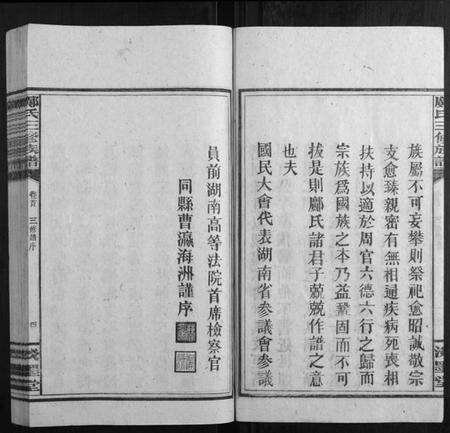 族屬不可妄攀則祭祀愈昭誠敬宗
支愈臻親密有無相通疾病死喪相
扶持以適於周官六德六行之歸而
宗族爲國族之本乃益鞏固而不可
拔是則鄺氏諸君子兢兢作譜之意
也夫
國民大會代表湖南省參議會參議
員前湖南高等法院首席檢察官
同縣曹瀛海洲謹序
鄺氏三修族譜
卷首
三修譜序
四
鄺氏三修族譜